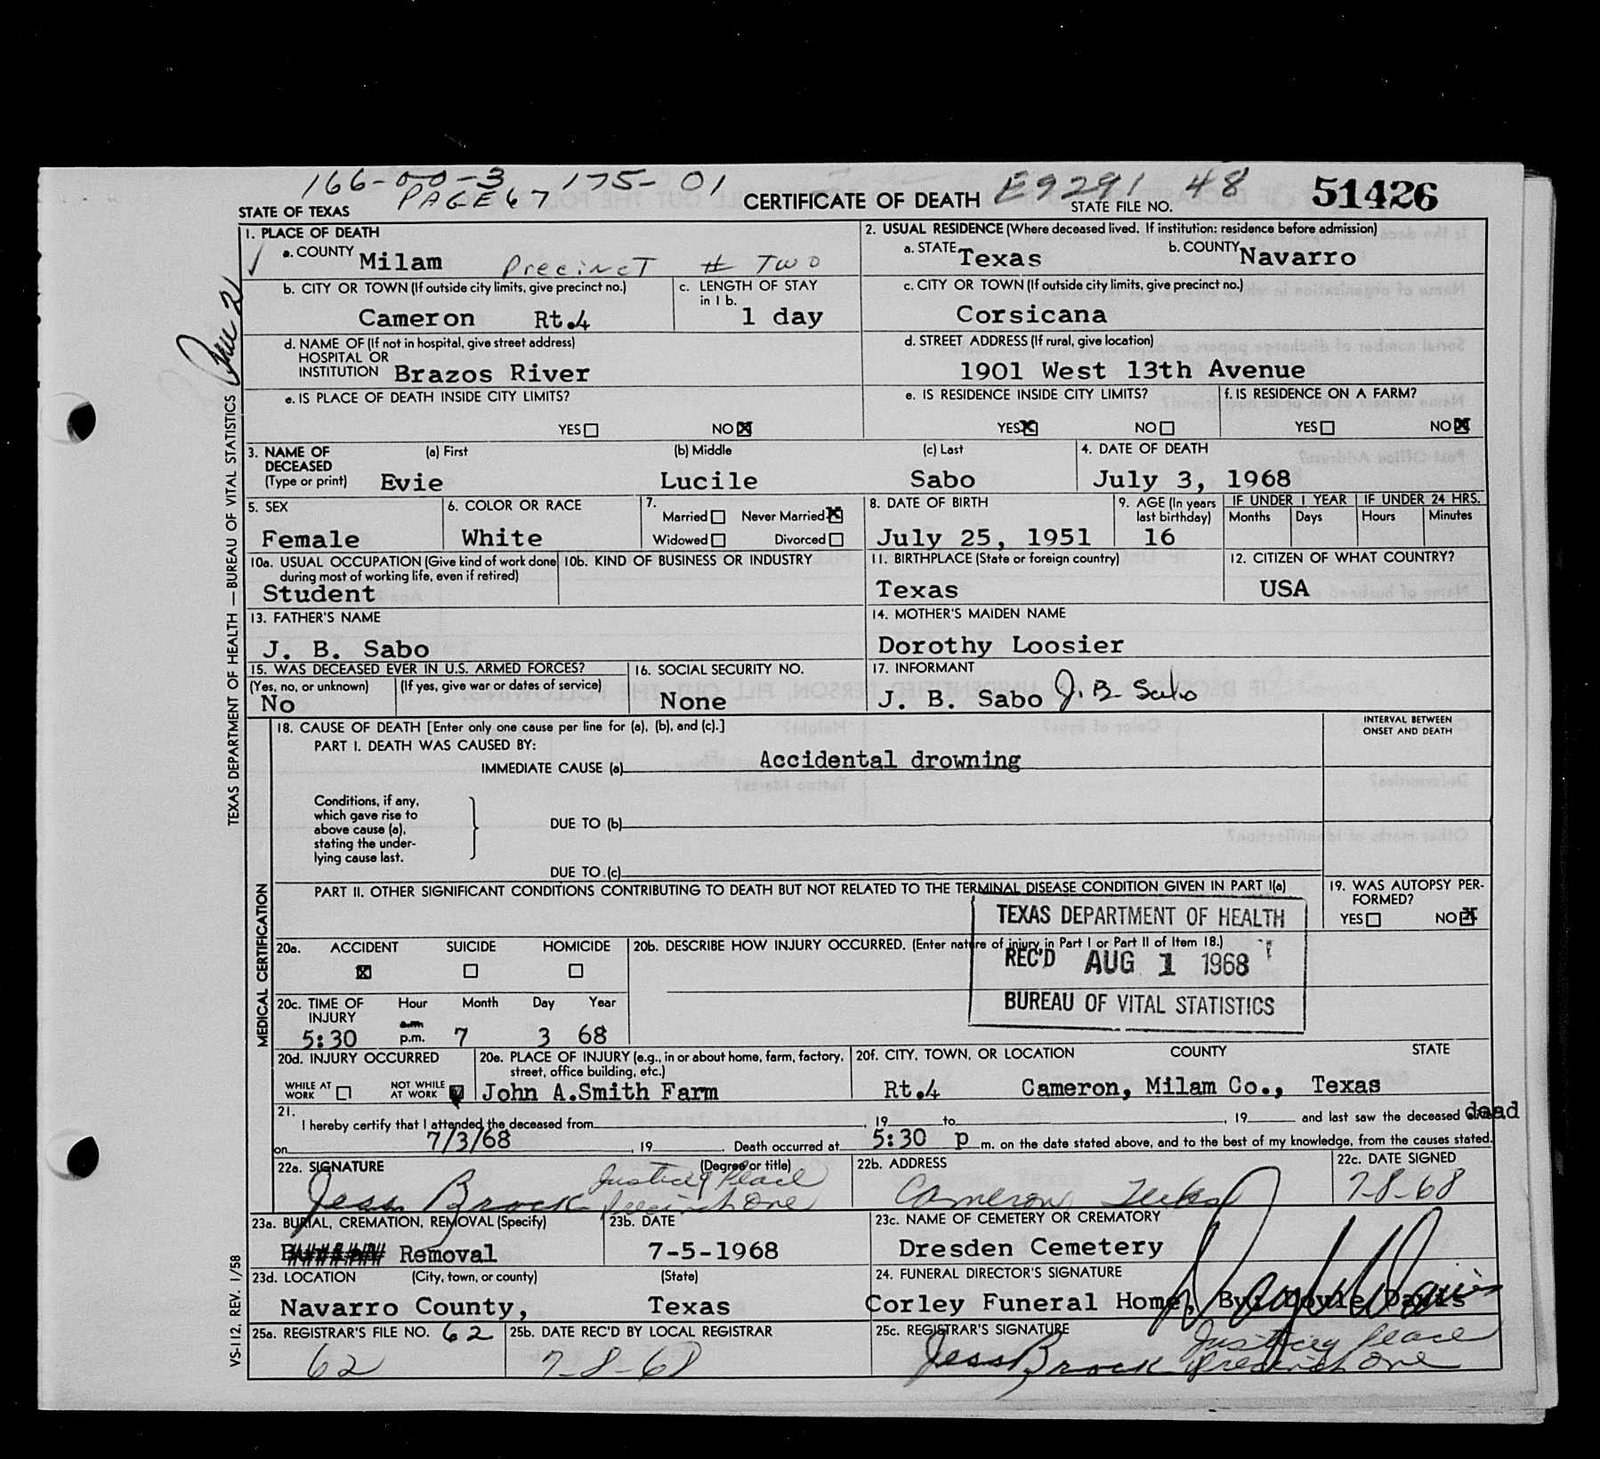 166-00-3 175-01
PAGE 67
STATE OF TEXAS
CERTIFICATE OF DEATH
E9291 48
STATE FILE NO.
51426
TEXAS DEPARTMENT OF HEALTH — BUREAU OF VITAL STATISTICS
1. PLACE OF DEATH
a. COUNTY Milam Precinct # Two
b. CITY OR TOWN (If outside city limits, give precinct no.)
Cameron Rt.4
c. LENGTH OF STAY in 1 b.
1 day
d. NAME OF (If not in hospital, give street address)
HOSPITAL OR
INSTITUTION Brazos River
e. IS PLACE OF DEATH INSIDE CITY LIMITS?
YES NO X
2. USUAL RESIDENCE (Where deceased lived. If institution: residence before admission)
a. STATE Texas b. COUNTY Navarro
c. CITY OR TOWN (If outside city limits, give precinct no.)
Corsicana
d. STREET ADDRESS (If rural, give location)
1901 West 13th Avenue
e. IS RESIDENCE INSIDE CITY LIMITS?
YES X NO
f. IS RESIDENCE ON A FARM?
YES NO X
3. NAME OF DECEASED (Type or print)
(a) First (b) Middle (c) Last
Evie Lucile Sabo
4. DATE OF DEATH
July 3, 1968
5. SEX
Female
6. COLOR OR RACE
White
7.
Married Never Married X
Widowed Divorced
8. DATE OF BIRTH
July 25, 1951
9. AGE (In years last birthday)
16
IF UNDER 1 YEAR IF UNDER 24 HRS.
Months Days Hours Minutes
10a. USUAL OCCUPATION (Give kind of work done
during most of working life, even if retired)
Student
10b. KIND OF BUSINESS OR INDUSTRY
11. BIRTHPLACE (State or foreign country)
Texas
12. CITIZEN OF WHAT COUNTRY?
USA
13. FATHER'S NAME
J. B. Sabo
14. MOTHER'S MAIDEN NAME
Dorothy Loosier
15. WAS DECEASED EVER IN U.S. ARMED FORCES?
(Yes, no, or unknown) (If yes, give war or dates of service)
No
16. SOCIAL SECURITY NO.
None
17. INFORMANT
J. B. Sabo J. B. Sabo
MEDICAL CERTIFICATION
18. CAUSE OF DEATH [Enter only one cause per line for (a), (b), and (c).]
INTERVAL BETWEEN
ONSET AND DEATH
PART I. DEATH WAS CAUSED BY:
IMMEDIATE CAUSE (a) Accidental drowning
Conditions, if any,
which gave rise to
above cause (a),
stating the under-
lying cause last.
DUE TO (b)
DUE TO (c)
PART II. OTHER SIGNIFICANT CONDITIONS CONTRIBUTING TO DEATH BUT NOT RELATED TO THE TERMINAL DISEASE CONDITION GIVEN IN PART I(a)
19. WAS AUTOPSY PER-
FORMED?
YES NO X
TEXAS DEPARTMENT OF HEALTH
REC'D AUG 1 1968
BUREAU OF VITAL STATISTICS
20a. ACCIDENT SUICIDE HOMICIDE
X
20b. DESCRIBE HOW INJURY OCCURRED. (Enter nature of injury in Part I or Part II of Item 18.)
20c. TIME OF INJURY
Hour Month Day Year
a.m.
5:30 p.m. 7 3 68
20d. INJURY OCCURRED
WHILE AT WORK NOT WHILE AT WORK
20e. PLACE OF INJURY (e.g., in or about home, farm, factory,
street, office building, etc.)
John A.Smith Farm
20f. CITY, TOWN, OR LOCATION COUNTY STATE
Rt.4 Cameron, Milam Co., Texas
21.
I hereby certify that I attended the deceased from , 19 to , 19 and last saw the deceased dead
on 7/3/68 , 19 . Death occurred at 5:30 p m. on the date stated above, and to the best of my knowledge, from the causes stated.
22a. SIGNATURE (Degree or title)
Jess Brock Justice Peace
Precinct One
22b. ADDRESS
Cameron Texas
22c. DATE SIGNED
7-8-68
23a. BURIAL, CREMATION, REMOVAL (Specify)
Burial Removal
23b. DATE
7-5-1968
23c. NAME OF CEMETERY OR CREMATORY
Dresden Cemetery
23d. LOCATION (City, town, or county) (State)
Navarro County, Texas
24. FUNERAL DIRECTOR'S SIGNATURE
Corley Funeral Home, By: Doyle Davis
25a. REGISTRAR'S FILE NO. 62
62
25b. DATE REC'D BY LOCAL REGISTRAR
7-8-68
25c. REGISTRAR'S SIGNATURE
Jess Brock Justice Peace
Precinct One
VS-112, REV. 1/58